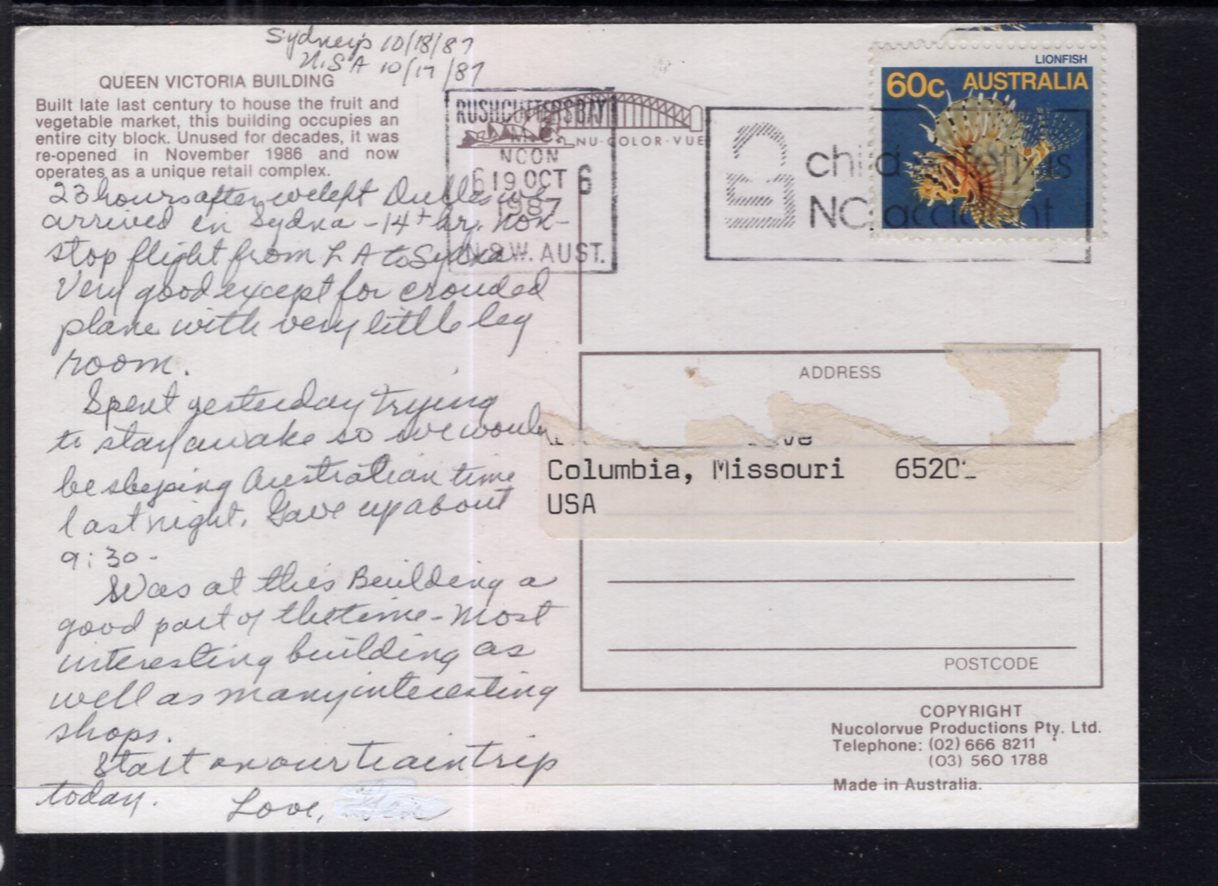 Sydney 10/18/87
U.S A 10/17/87
QUEEN VICTORIA BUILDING
Built late last century to house the fruit and
vegetable market, this building occupies an
entire city block. Unused for decades, it was
re-opened in November 1986 and now
operates as a unique retail complex.
23 hours after we left Dulles we
arrived in Sydna - 14+ hr. non-
stop flight from L A to Sydna.
Very good except for crouded
plane with very little leg
room.
Spent yesterday trying
to stay awake so we would
be sleeping Australian time
last night. Gave up about
9:30-
Was at this Building a
good part of the time - Most
interesting building as
well as many interesting
shops.
Start on our train trip
today.
Love,
RUSHCUTTERS BAY
NCON
6 19 OCT 6
1987
N.S.W. AUST.
NU-COLOR-VUE
child safety is
NO accident
LIONFISH
60c AUSTRALIA
ADDRESS
Columbia, Missouri 6520
USA
POSTCODE
COPYRIGHT
Nucolorvue Productions Pty. Ltd.
Telephone: (02) 666 8211
(03) 560 1788
Made in Australia.